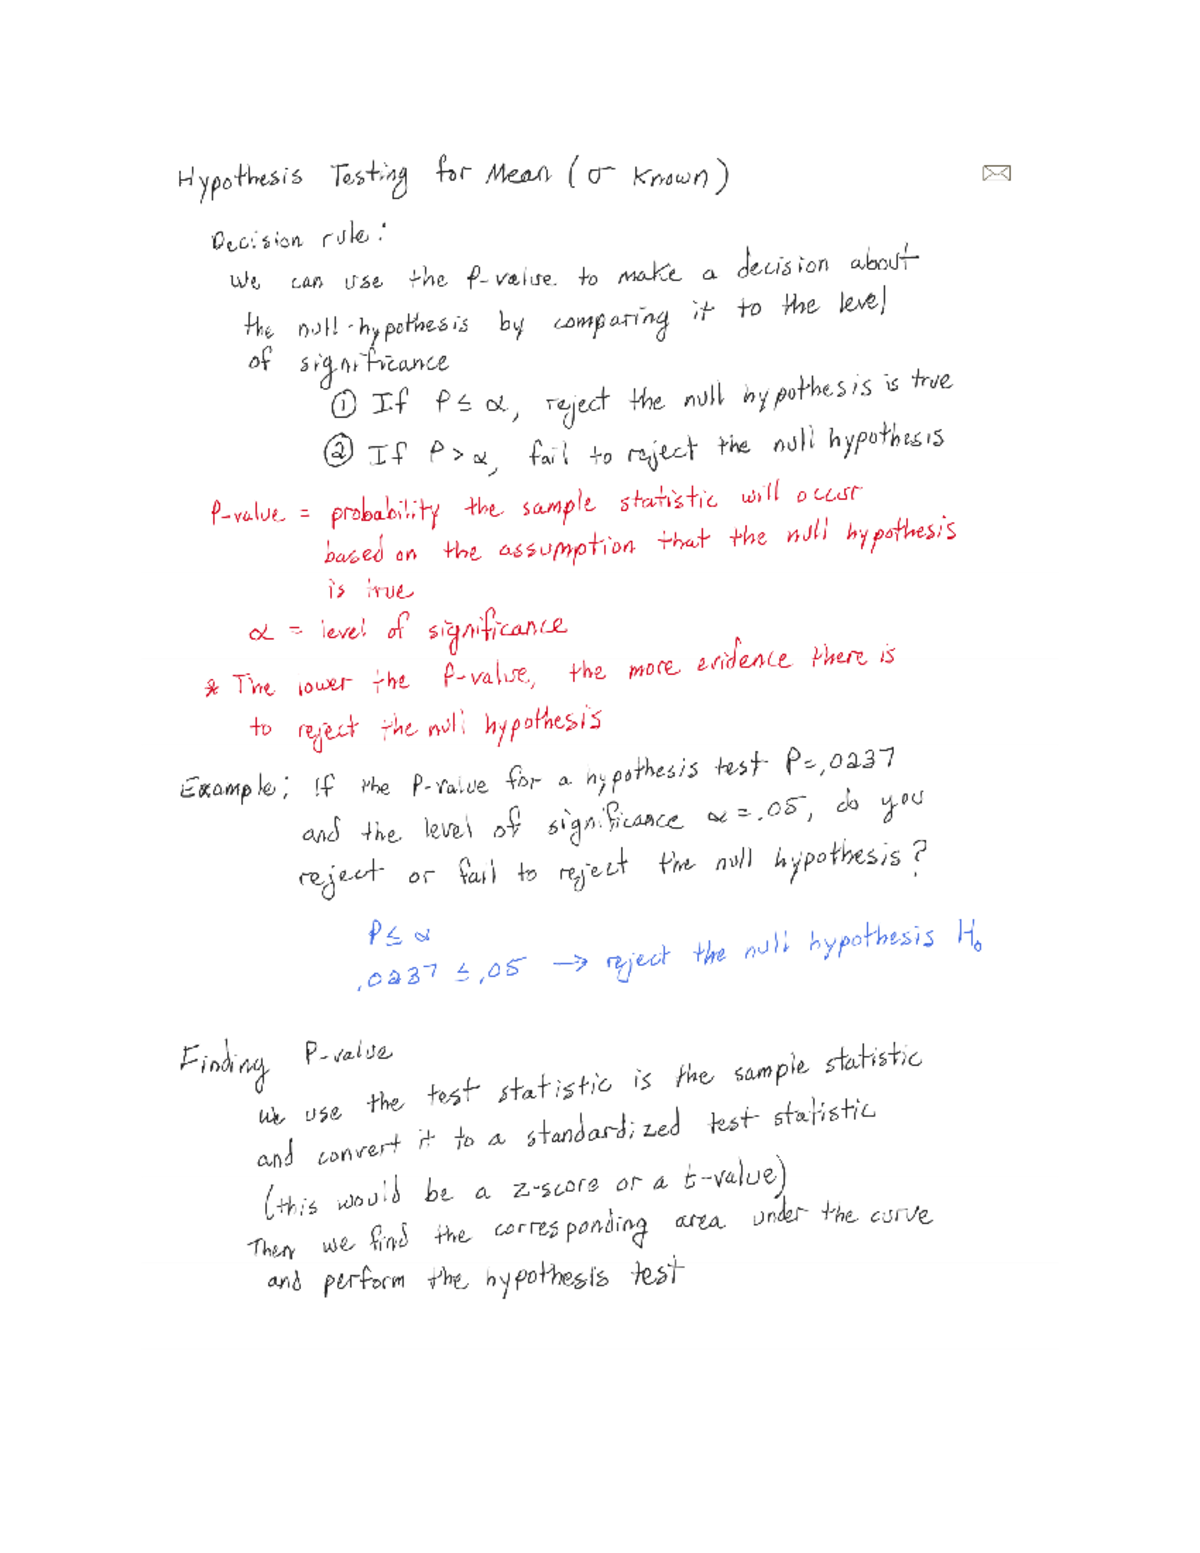 Hypothesis Testing for Mean (σ known)
Decision rule:
We can use the P-value to make a decision about
the null hypothesis by comparing it to the level
of significance
① If P ≤ α, reject the null hypothesis is true
② If P > α, fail to reject the null hypothesis
P-value = probability the sample statistic will occur
based on the assumption that the null hypothesis
is true
α = level of significance
* The lower the P-value, the more evidence there is
to reject the null hypothesis
Example: If the P-value for a hypothesis test P=.0237
and the level of significance α=.05, do you
reject or fail to reject the null hypothesis?
P ≤ α
.0237 ≤ .05 → reject the null hypothesis H₀
Finding P-value
We use the test statistic is the sample statistic
and convert it to a standardized test statistic
(this would be a z-score or a t-value)
Then we find the corresponding area under the curve
and perform the hypothesis test